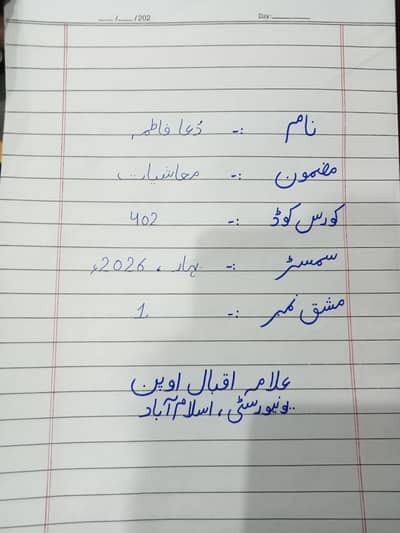 ___/___/202 Day:___
نام :- دُعا فاطمہ
مضمون :- معاشیات
کورس کوڈ :- 402
سمسٹر :- بہار ، 2026ء
مشق نمبر :- 1
علامہ اقبال اوپن
یونیورسٹی ، اسلام آباد